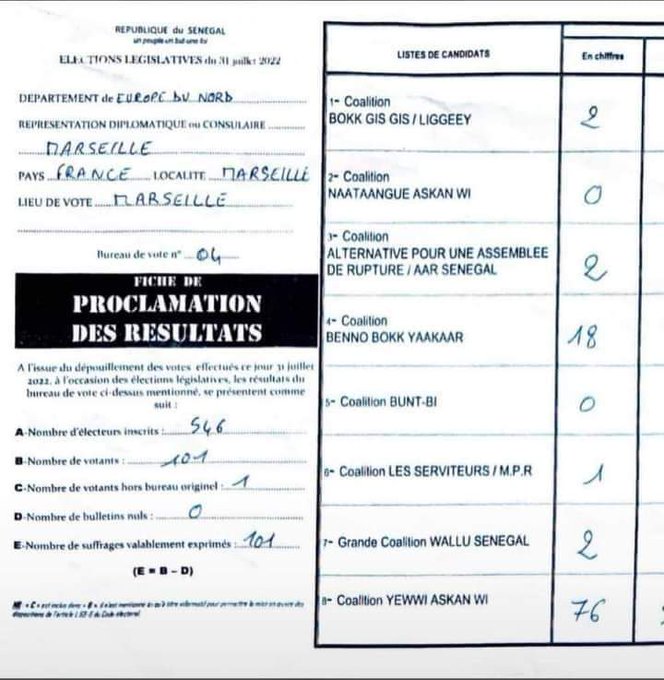 REPUBLIQUE du SENEGAL
un peuple un but une foi
ELECTIONS LEGISLATIVES du 31 juillet 2022
DEPARTEMENT de EUROPE DU NORD
REPRESENTATION DIPLOMATIQUE ou CONSULAIRE
MARSEILLE
PAYS FRANCE LOCALITE MARSEILLE
LIEU DE VOTE MARSEILLE
Bureau de vote n° 04
FICHE DE
PROCLAMATION
DES RESULTATS
A l'issue du dépouillement des votes effectués ce jour 31 juillet
2022, à l'occasion des élections législatives, les résultats du
bureau de vote ci-dessus mentionné, se présentent comme
suit :
A-Nombre d'électeurs inscrits : 546
B-Nombre de votants : 101
C-Nombre de votants hors bureau originel : 1
D-Nombre de bulletins nuls : 0
E-Nombre de suffrages valablement exprimés : 101
(E = B – D)
NB : « C » est inclus dans « B », il n'est mentionné ici qu'à titre informatif pour permettre la mise en œuvre des
dispositions de l'article du Code électoral
LISTES DE CANDIDATS En chiffres
1- Coalition
BOKK GIS GIS / LIGGEEY 2
2- Coalition
NAATAANGUE ASKAN WI 0
3- Coalition
ALTERNATIVE POUR UNE ASSEMBLEE
DE RUPTURE / AAR SENEGAL 2
4- Coalition
BENNO BOKK YAAKAAR 18
5- Coalition BUNT-BI 0
6- Coalition LES SERVITEURS / M.P.R 1
7- Grande Coalition WALLU SENEGAL 2
8- Coalition YEWWI ASKAN WI 76